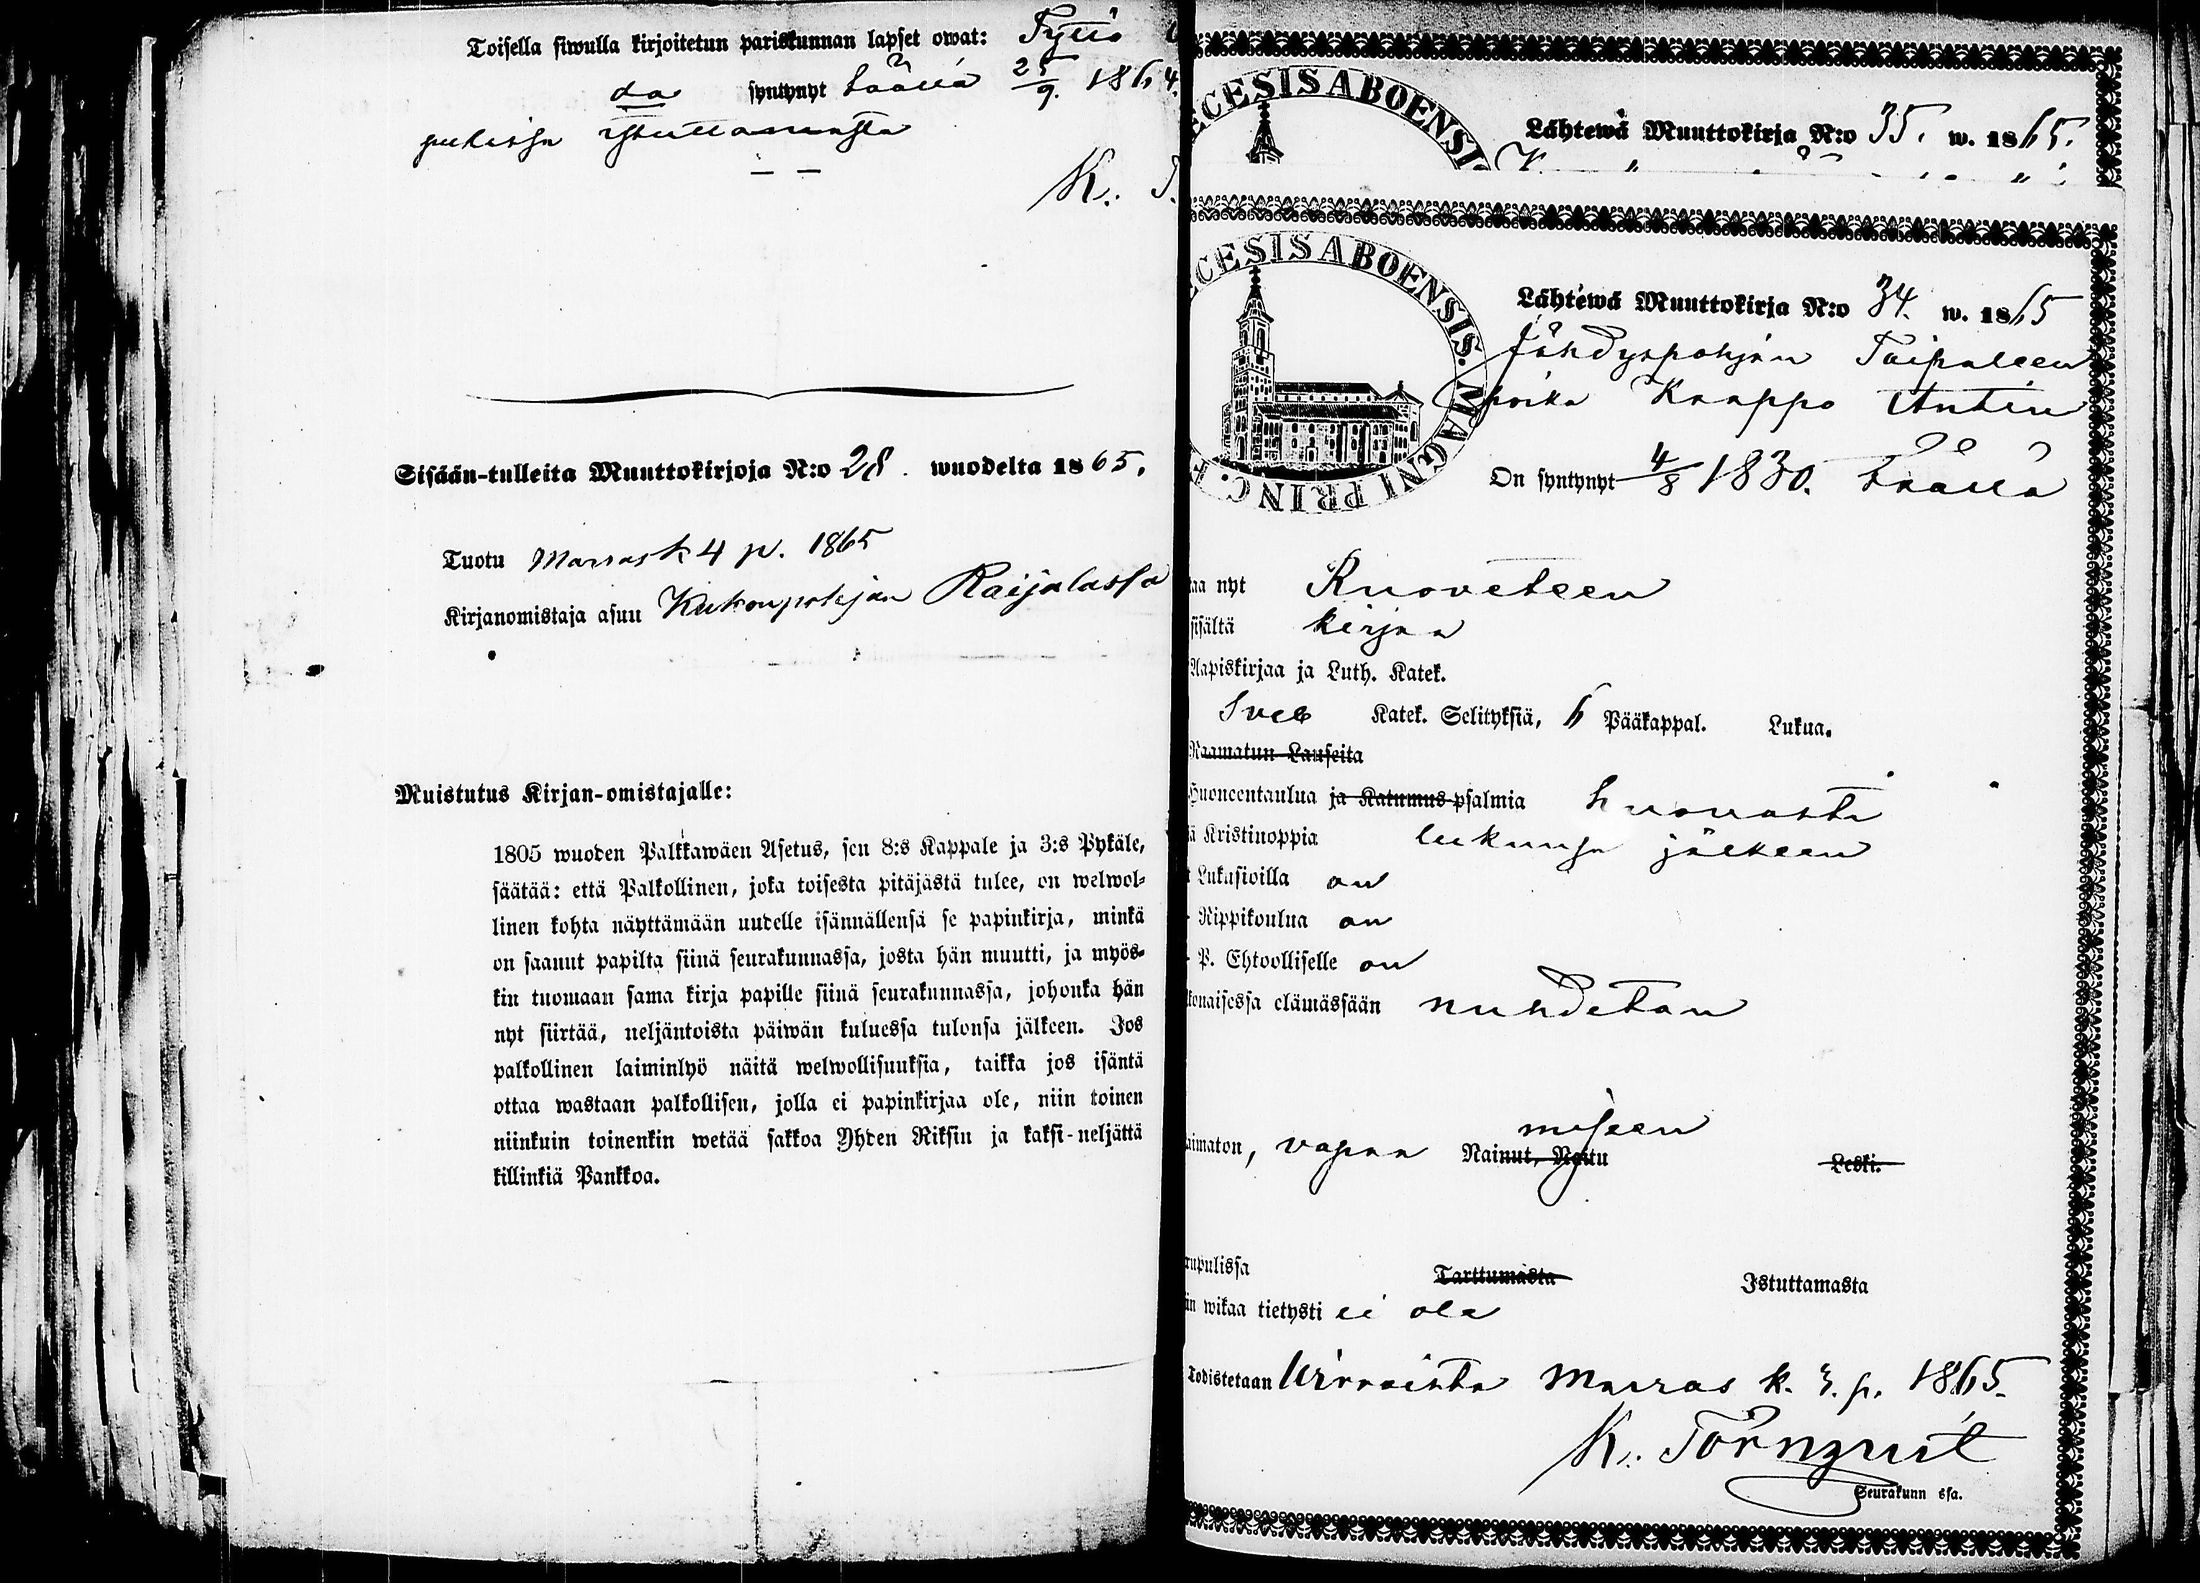 Toisella siwulla kirjoitetun pariskunnan lapset owat: Tyttö
da syntynyt täällä 25/9. 1864.
pukissa istuttamasta
K.
Sisään-tulleita Muuttokirjoja N:o 28. wuodelta 1865.
Tuotu Marrask 4 p. 1865
Kirjanomistaja asuu Kukonpohjan Raijalassa
Muistutus Kirjan-omistajalle:
1805 wuoden Palkkawäen Asetus, sen 8:s Kappale ja 3:s Pykäle,
säätää: että Palkollinen, joka toisesta pitäjästä tulee, on welwol-
linen kohta näyttämään uudelle isännällensä se papinkirja, minkä
on saanut papilta siinä seurakunnassa, josta hän muutti, ja myös-
kin tuomaan sama kirja papille siinä seurakunnassa, johonka hän
nyt siirtää, neljäntoista päiwän kuluessa tulonsa jälkeen. Jos
palkollinen laiminlyö näitä welwollisuuksia, taikka jos isäntä
ottaa wastaan palkollisen, jolla ei papinkirjaa ole, niin toinen
niinkuin toinenkin wetää sakkoa Yhden Riksin ja kaksi-neljättä
killinkiä Pankkoa.
ECESIS ABOENSI
Lähtewä Muuttokirja N:o 35. w. 1865.
CESIS ABOENSIS. MAGNI PRINC. F
Lähtewä Muuttokirja N:o 34. w. 1865
Jähdyspohjan Taipaleen
poika Kaappo Antin
On syntynyt 4/8 1830. täällä
aa nyt Ruoveteen
sisältä kirjaa
Aapiskirjaa ja Luth. Katek.
Sveb Katek. Selityksiä, 6 Pääkappal. Lukua.
Raamatun Lauseita
Huoneentaulua ja Katumus-psalmia huonosti
ä Kristinoppia lukunsa jälkeen
Lukusioilla on
Rippikoulua on
P. Ehtoolliselle on
konaisessa elämässään nuhdetan
aimaton, vapaa Nainut, Naitu miseen Leski.
rupulissa Tarttumasta Istuttamasta
än wikaa tietysti ei ole
Todistetaan Virroista Marras k. 3. p. 1865.
K. Törnqvist
Seurakunn ssa.